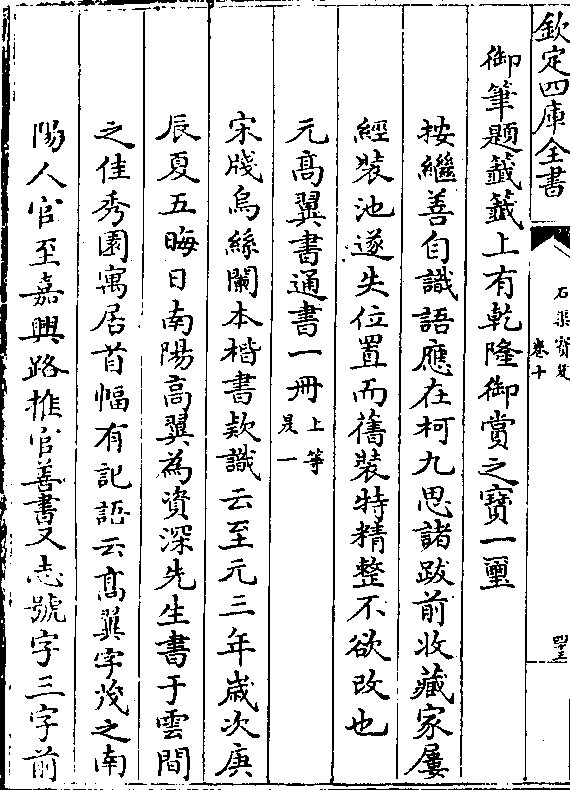 欽定四庫全書
石渠寶笈
卷十
四十三
御筆題籤籤上有乾隆御賞之寶一璽
按繼善自識語應在柯九思諸跋前收藏家屢
經裝池遂失位置而舊裝特精整不欲改也
元高翼書通書一冊上等
晟一
宋牋烏絲闌本楷書款識云至元三年歲次庚
辰夏五晦日南陽高翼為資深先生書于雲間
之佳秀園寓居首幅有記語云高翼字茂之南
陽人官至嘉興路推官善書又志號字三字前